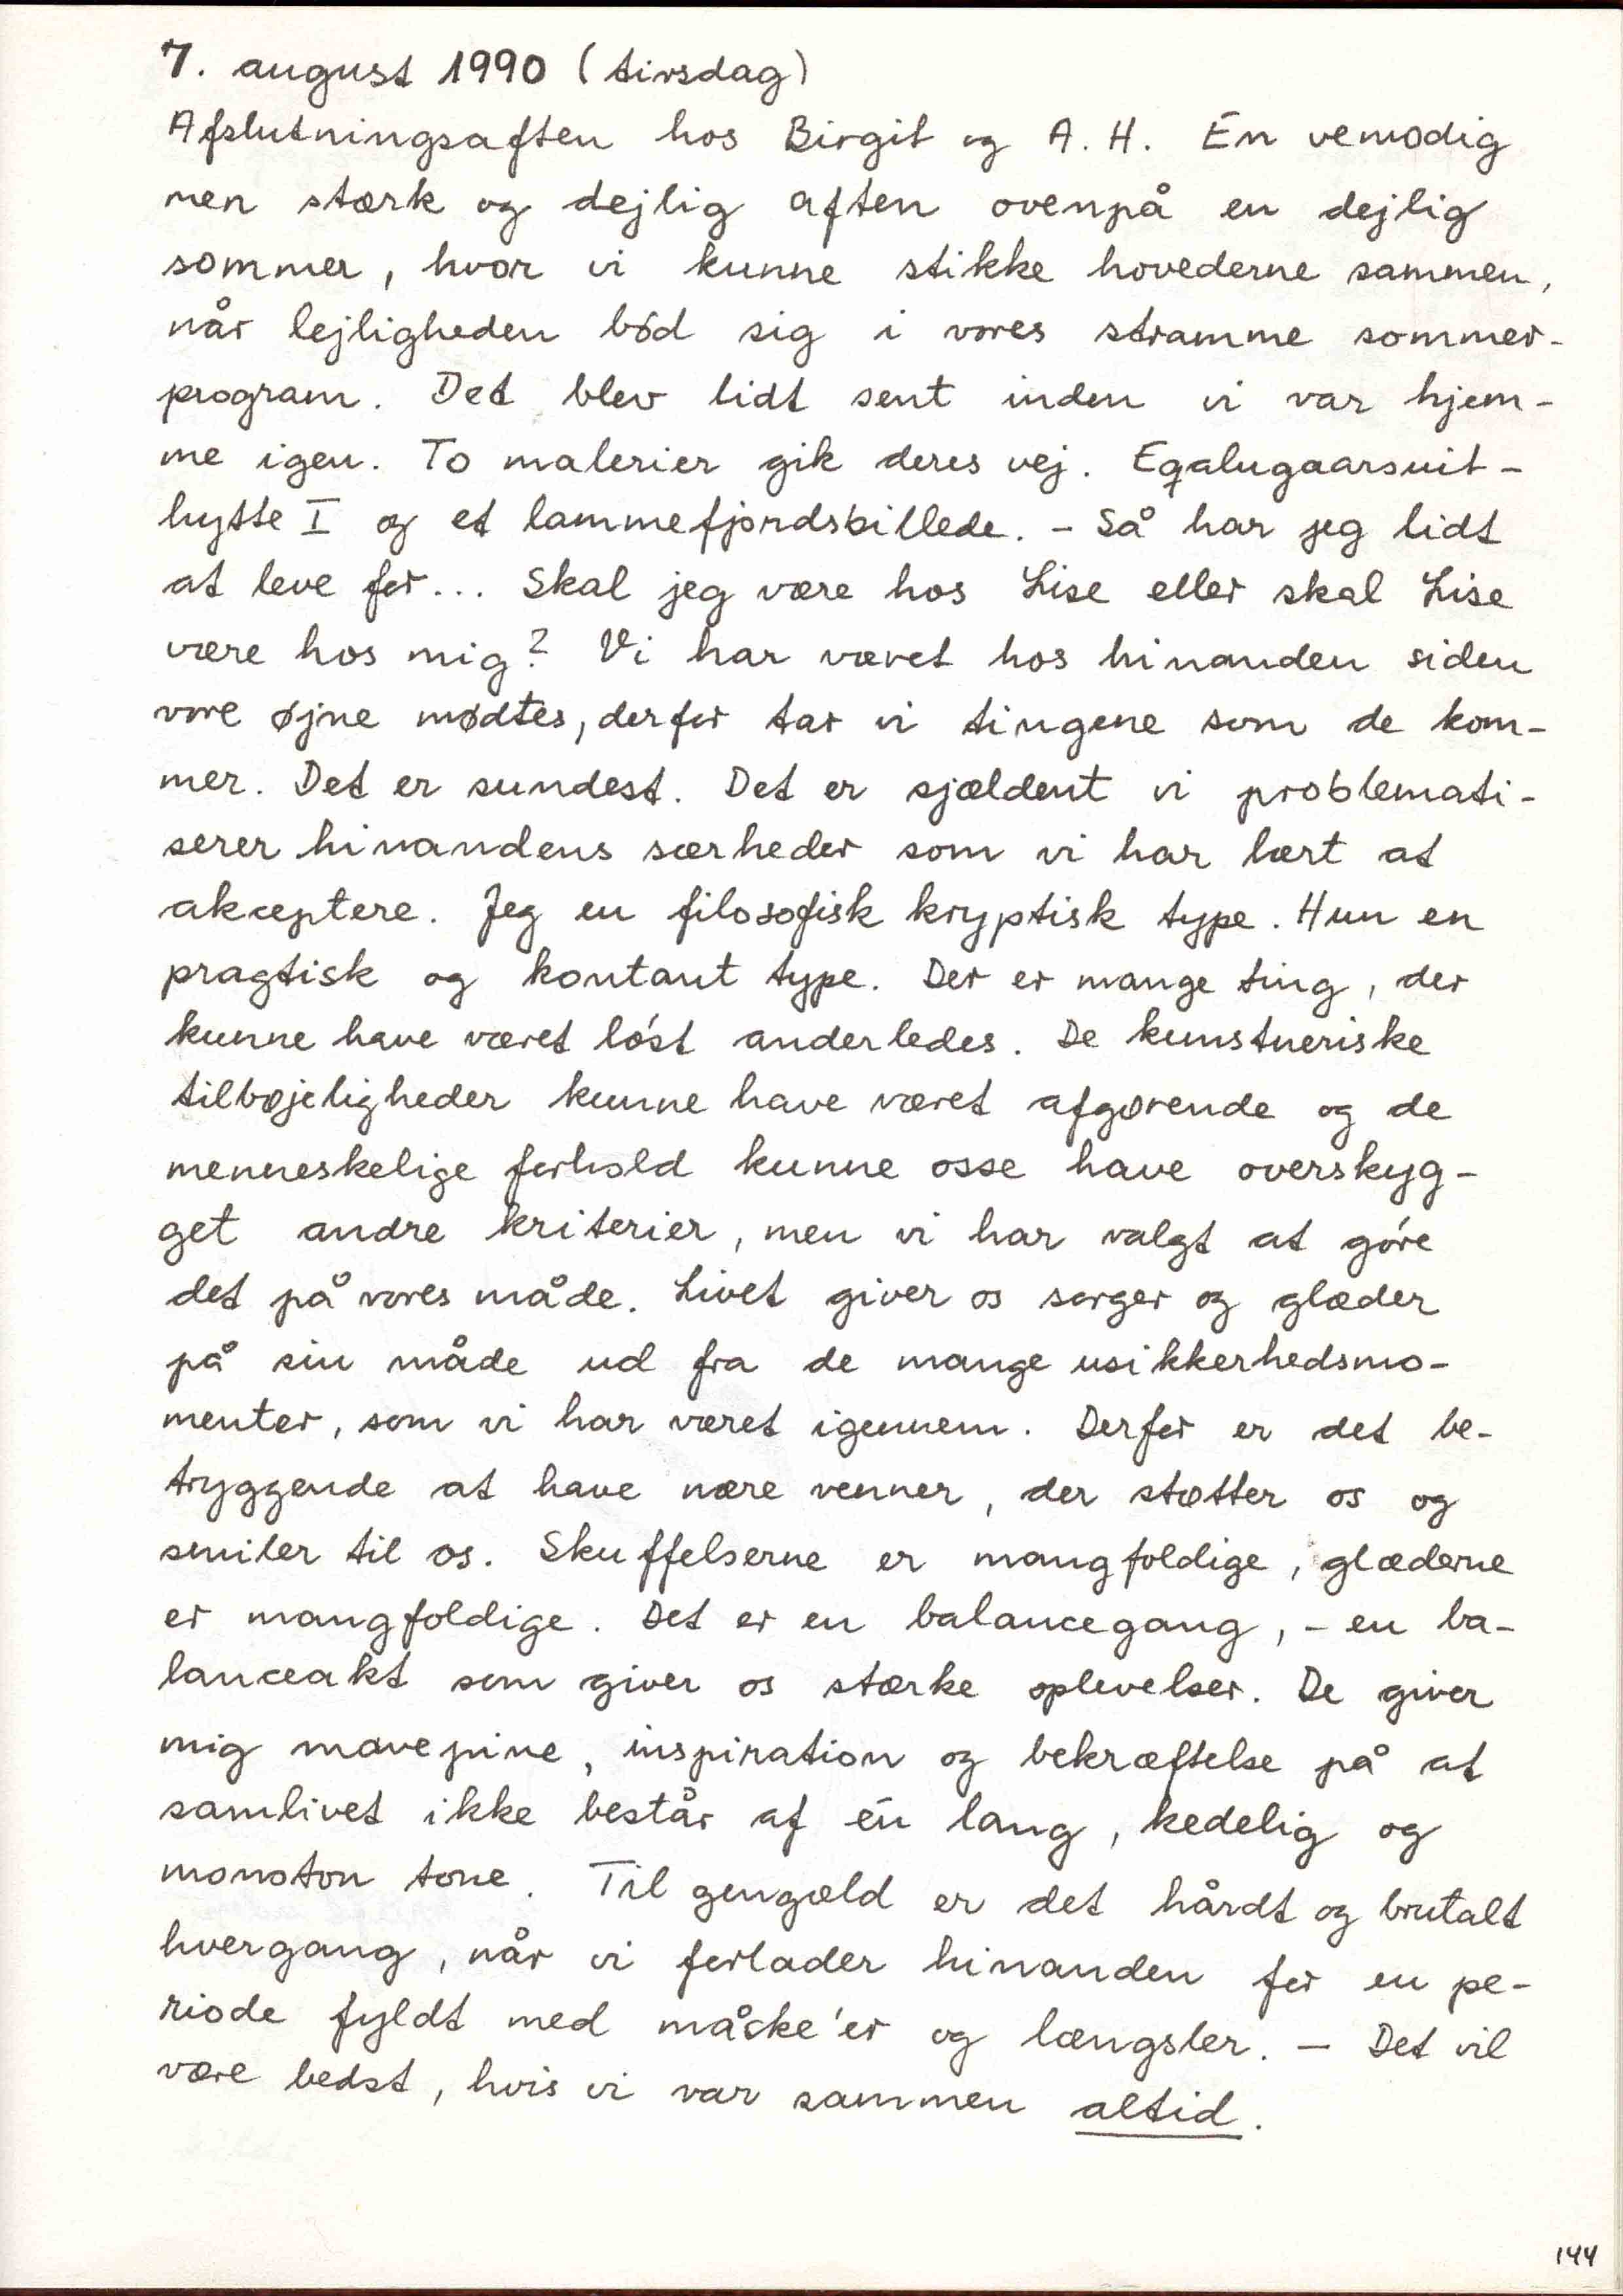 7. august 1990 (tirsdag)
Afslutningsaften hos Birgit og A. H. En vemodig
men stærk og dejlig aften ovenpå en dejlig
sommer, hvor vi kunne stikke hovederne sammen,
når lejligheden bød sig i vores stramme sommer-
program. Det blev lidt sent inden vi var hjem-
me igen. To malerier gik deres vej. Eqalugaarsuit-
hytte I og et lammefjordsbillede. - Så har jeg lidt
at leve for... Skal jeg være hos Lise eller skal Lise
være hos mig? Vi har været hos hinanden siden
vore øjne mødtes, derfor tar vi tingene som de kom-
mer. Det er sundest. Det er sjældent vi problemati-
serer hinandens særheder som vi har lært at
akceptere. Jeg en filosofisk kryptisk type. Hun en
pragtisk og kontant type. Der er mange ting, der
kunne have været løst anderledes. De kunstneriske
tilbøjeligheder kunne have været afgørende og de
menneskelige forhold kunne osse have overskyg-
get andre kriterier, men vi har valgt at gøre
det på vores måde. Livet giver os sorger og glæder
på sin måde ud fra de mange usikkerhedsmo-
menter, som vi har været igennem. Derfor er det be-
tryggende at have nære venner, der støtter os og
smiler til os. Skuffelserne er mangfoldige, glæderne
er mangfoldige. Det er en balancegang, - en ba-
lanceakt som giver os stærke oplevelser. De giver
mig mavepine, inspiration og bekræftelse på at
samlivet ikke består af én lang, kedelig og
monoton tone. Til gengæld er det hårdt og brutalt
hvergang, når vi forlader hinanden for en pe-
riode fyldt med måske'er og længsler. — Det vil
være bedst, hvis vi var sammen altid.
144